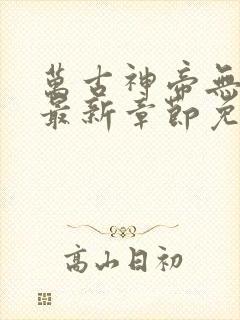 萬古神帝無
最新章節免
高山日初